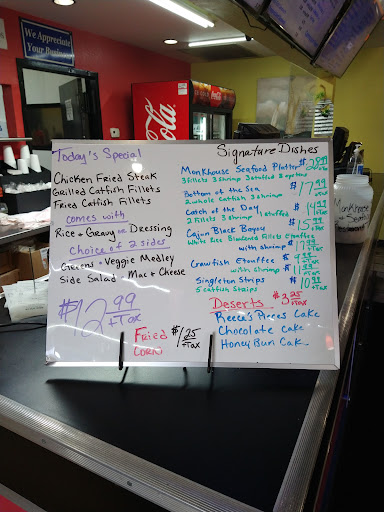 We Appreciate
Your Business
Coca-Cola
Today's Special
Chicken Fried Steak
Grilled Catfish Fillets
Fried Catfish Fillets
comes with
Rice & Gravy or Dressing
Choice of 2 sides
Greens • Veggie Medley
Side Salad • Mac & Cheese
$12.99
+Tax
Fried
Corn
$1.25
+Tax
Signature Dishes
Monkhouse Seafood Platter
3 fillets 3 shrimp 3 stuffed 3 oysters
Bottom of the Sea $17.99
+Tax
2 whole catfish 3 shrimp
Catch of the Day $14.99
+Tax
2 fillets 3 shrimp 1 stuffed
Cajun Black Bayou $15.99
White Rice Blackened Fillets Etouffee
with shrimp $17.99
+Tax
Crawfish Etouffee $9.99
with shrimp $11.99
+Tax
Singleton Strips $10.99
+Tax
5 catfish strips
Desserts $3.25
+Tax
Reece's Pieces Cake
Chocolate Cake
Honey Bun Cake
Monkhouse